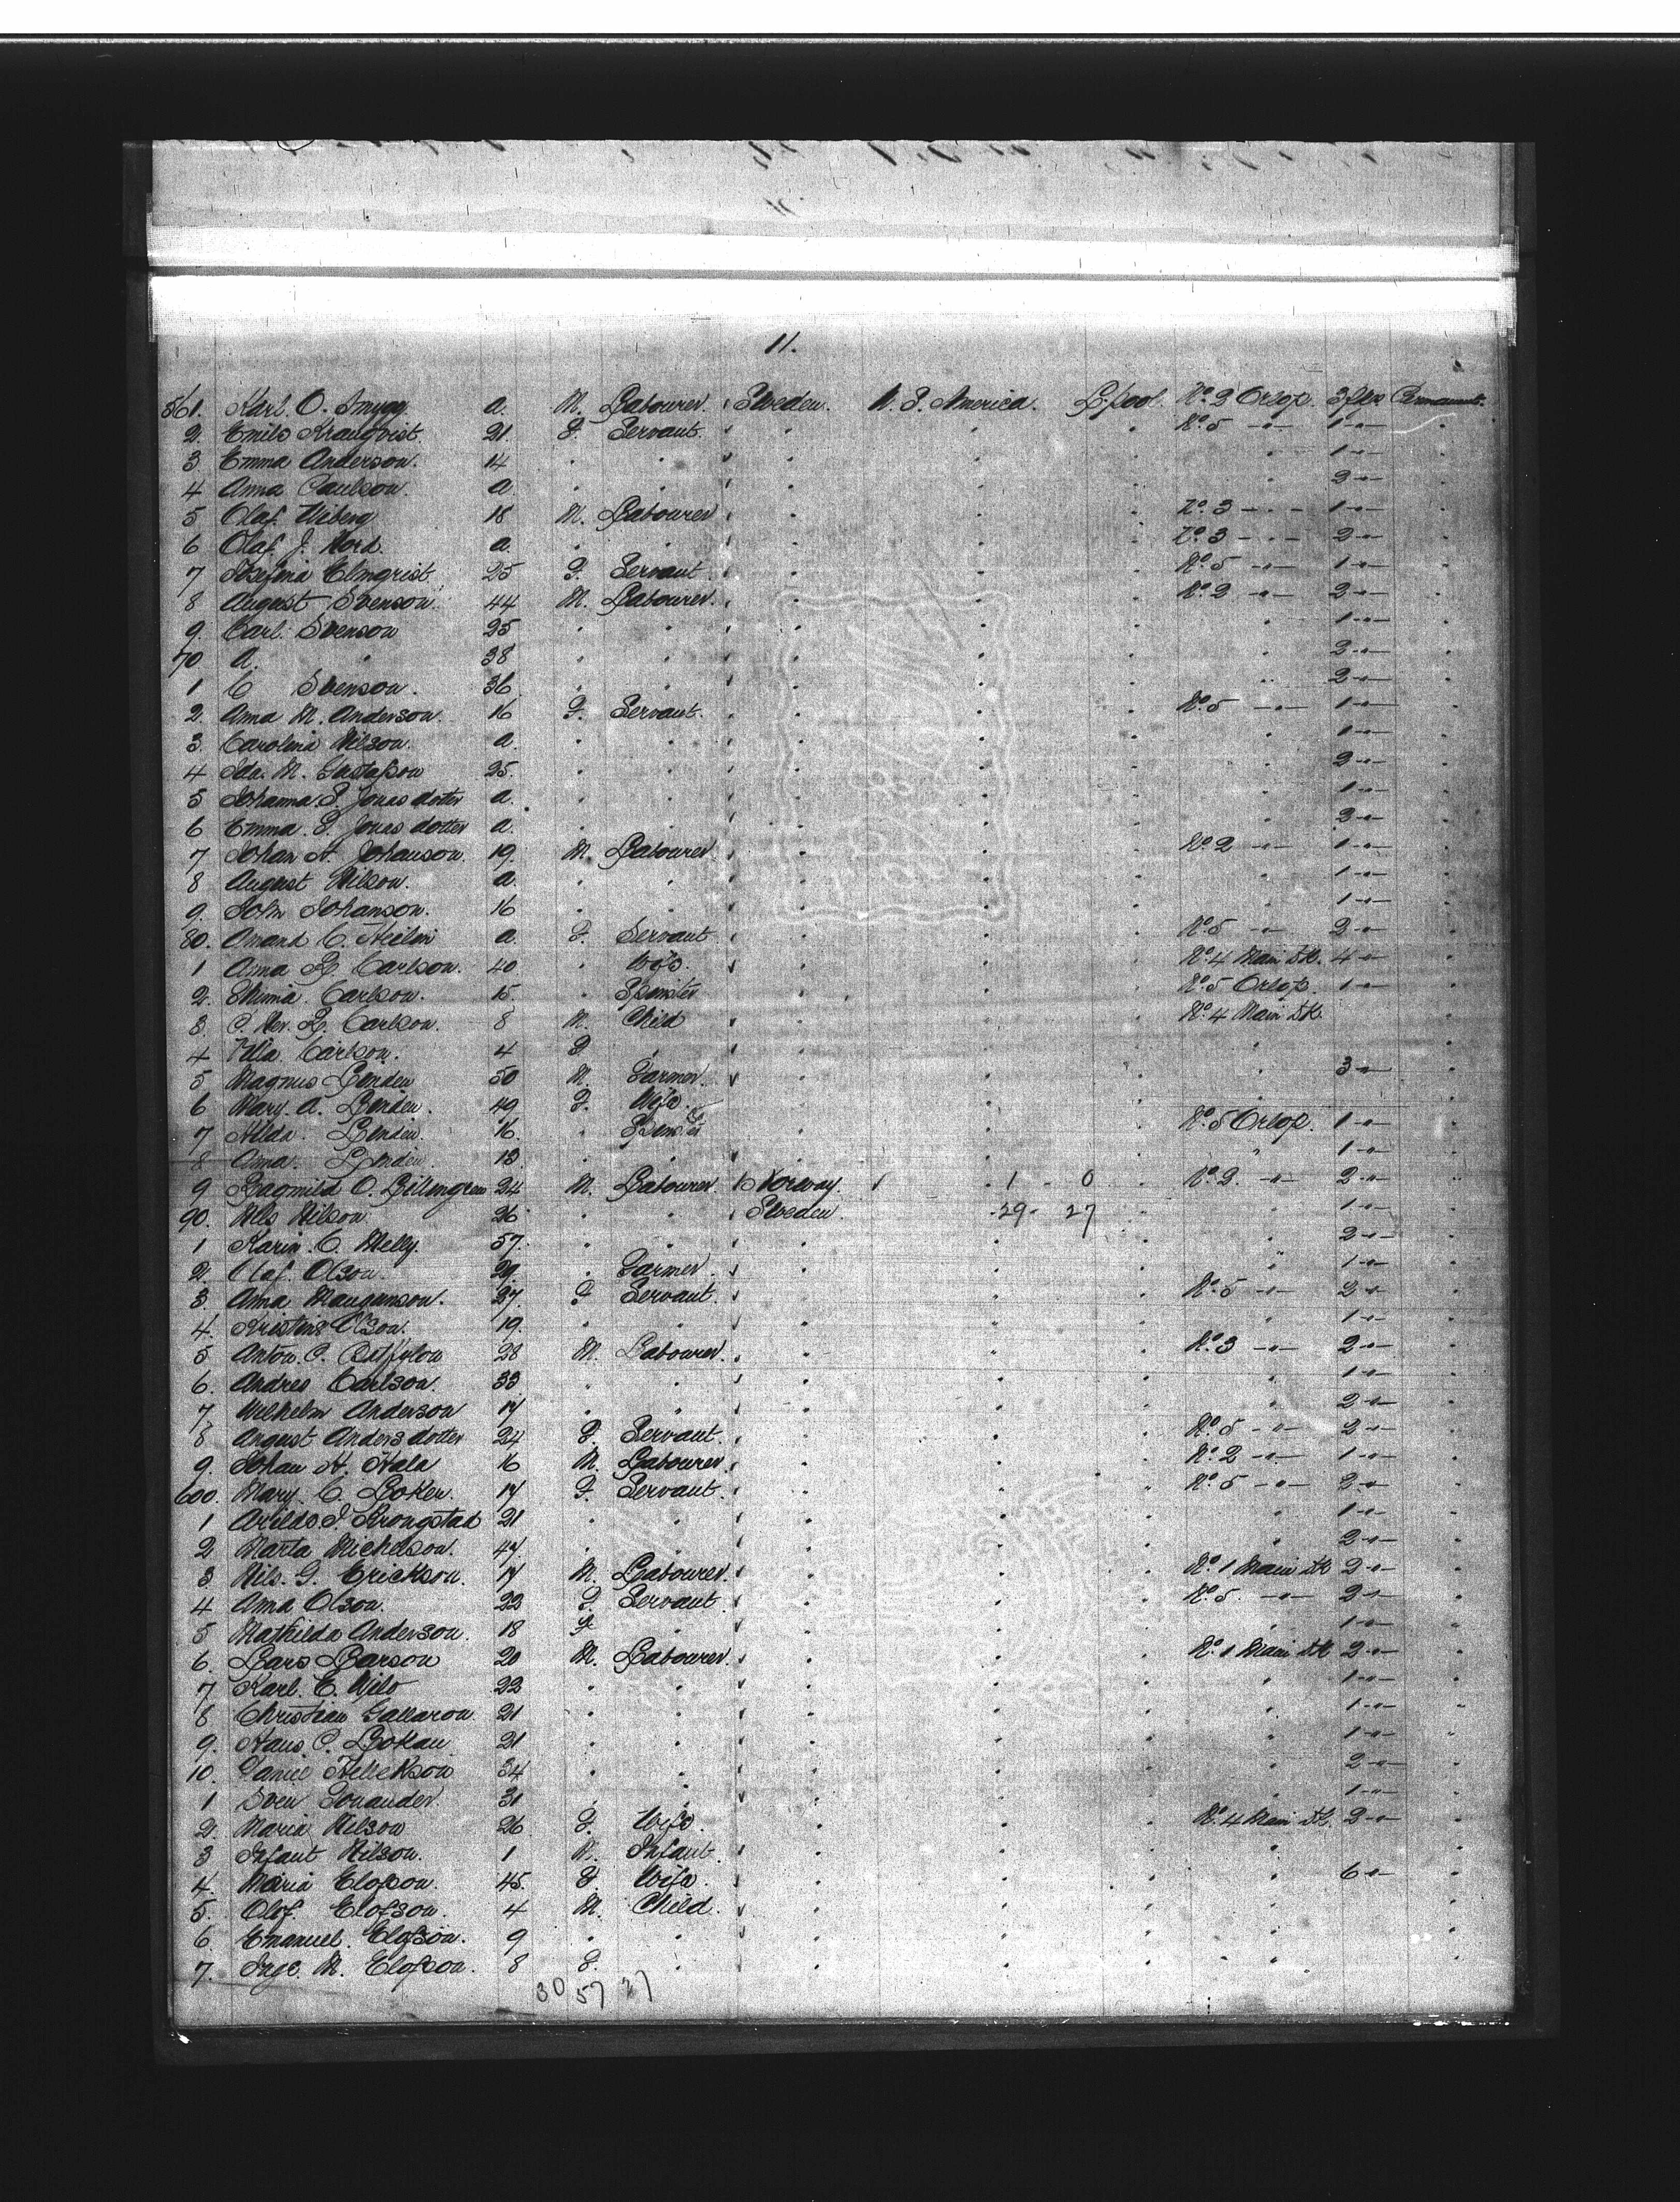 11.
561. Karl O. Smygg. a. M. Labourer. Sweden. U. S. America. L'pool. No. 2 Orlop. 3 pkgs Permanent.
2. 21. F. Servant. " " " No. 5 -"- 1 -"- "
3 Emma Anderson. 14 " " " " " " 1 -"- "
4 Anna Paulson. a " " " " " " 2 -"- "
5 Olaf Wiberg 18 M. Labourer " " " No. 3 - " - 1 -"- "
6 Olaf J. Nord. a. " " " " " No. 3 - " - 2 -"- "
7 Josefina Elmqvist 25 F. Servant " " " No. 5 -"- 1 -"- "
8 August Svenson. 44 M. Labourer. " " " No. 2 -"- 2 -"- "
9. Carl. Svenson 25 " " " " " " 1 -"- "
70 A. " 38 " " " " " " 2 -"- "
1 C Svenson. 36 " " " " " " 2 -"- "
2. Anna M. Anderson. 16 F. Servant. " " " No. 5 -"- 1 -"- "
3. Carolina Nilson. a. " " " " " " 1 -"- "
4 Ida. M. Gustafson 25. " " " " " " 2 -"- "
5 Johanna. S. Jonas dotter a. " " " " " " 1 -"- "
6 Emma. S. Jonas dotter a. " " " " " " 2 -"- "
7 Johan A. Johanson. 19. M. Labourer " " " No. 2 -"- 1 -"- "
8 August Nilson. a. " " " " " " 1 -"- "
9. John Johanson. 16 " " " " " " 1 -"- "
80. Amand C. a. F. Servant " " " No. 5 -"- 2 -"- "
1 Anna L. Carlson. 40 " Wife. " " " No. 4 Main Dk. 4 -"- "
2. Carlson. 15. " Spinster " " " No. 5 Orlop. 1 -"- "
3. L. Carlson. 8 M. Child " " " No. 4 Main Dk. "
4 Carlson. 4 F. " " " " " "
5. Magnus Linden 50 M. Farmer. " " " " 3 -"- "
6 Mary. A. Linden. 49 F. Wife. " " " " "
7 Hilda. Linden. 16. " Spinster " " " No. 5 Orlop. 1 -"- "
8 Anna. Linden. 13. " " " " " " 1 -"- "
9 24 M. Labourer. Norway. 1 - 0 " No. 2. -"- 2 -"- "
90. Nils Nilson 26 " " Sweden. 29 - 27 " " 1 -"- "
1 Karin. C. Melly. 57. " " " " " " 2 -"- "
2. Olaf. Olson. 29. " Farmer. " " " " 1 -"- "
3. Anna Mauganson. 37. F Servant. " " " No. 5 -"- 2 -"- "
4. Kristina Olson. 19. " " " " " " 1 -"- "
5 Anton. P. 28 M. Labourer. " " " No. 3 -"- 2 -"- "
6. Andres Carlson. 33 " " " " " " 1 -"- "
7 Wilhelm Anderson 17 " " " " " " 2 -"- "
8 August Anders dotter 24 F. Servant. " " " No. 5 -"- 2 -"- "
9. Johan A. Hala 16 M. Labourer. " " " No. 2 -"- 1 -"- "
600. Mary. C. Loken. 17 F. Servant. " " " No. 5 -"- 2 -"- "
1 Krongstad 21 " " " " " " 1 -"- "
2 Marta Michelson. 47. " " " " " " 2 -"- "
3. Nils. G. Erickson. 17 M. Labourer. " " " No. 1 Main Dk 2 -"- "
4 Anna Olson. 22 F. Servant. " " " No. 5. -"- 2 -"- "
5 Mathilda Anderson. 18 F " " " " " 1 -"- "
6. Lars Larson 20 M. Labourer. " " " No. 1 Main Dk 2 -"- "
7 Karl. E. 22 " " " " " " 1 -"- "
8 Christian 21 " " " " " " 1 -"- "
9. Hans. P. 21 " " " " " " 1 -"- "
10. Daniel 34 " " " " " " 2 -"- "
1 Sven 31 " " " " " " 1 -"- "
2. Maria Nilson 26 F. Wife. " " " No. 4 Main Dk. 2 -"- "
3 Infant Nilson. 1 M. Infant. " " " " "
4. Maria Elofson. 45. F. Wife. " " " " 6 -"- "
5. Olof. Elofson. 4 M. Child. " " " " "
6. Emanuel. Elofson. 9 " " " " " " "
7. Inge. M. Elofson. 8 F. " " " " " "
30 57 27